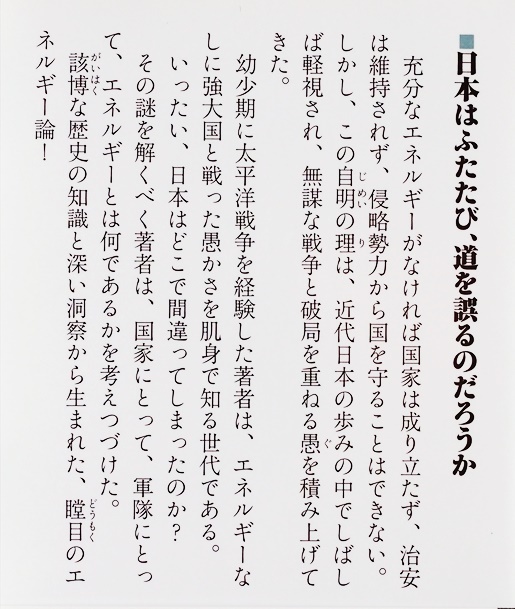 ■日本はふたたび、道を誤るのだろうか
充分なエネルギーがなければ国家は成り立たず、治安
は維持されず、侵略勢力から国を守ることはできない。
しかし、この自明の理は、近代日本の歩みの中でしばし
ば軽視され、無謀な戦争と破局を重ねる愚を積み上げて
きた。
幼少期に太平洋戦争を経験した著者は、エネルギーな
しに強大国と戦った愚かさを肌身で知る世代である。
いったい、日本はどこで間違ってしまったのか？
その謎を解くべく著者は、国家にとって、軍隊にとっ
て、エネルギーとは何であるかを考えつづけた。
該博な歴史の知識と深い洞察から生まれた、瞠目のエ
ネルギー論！